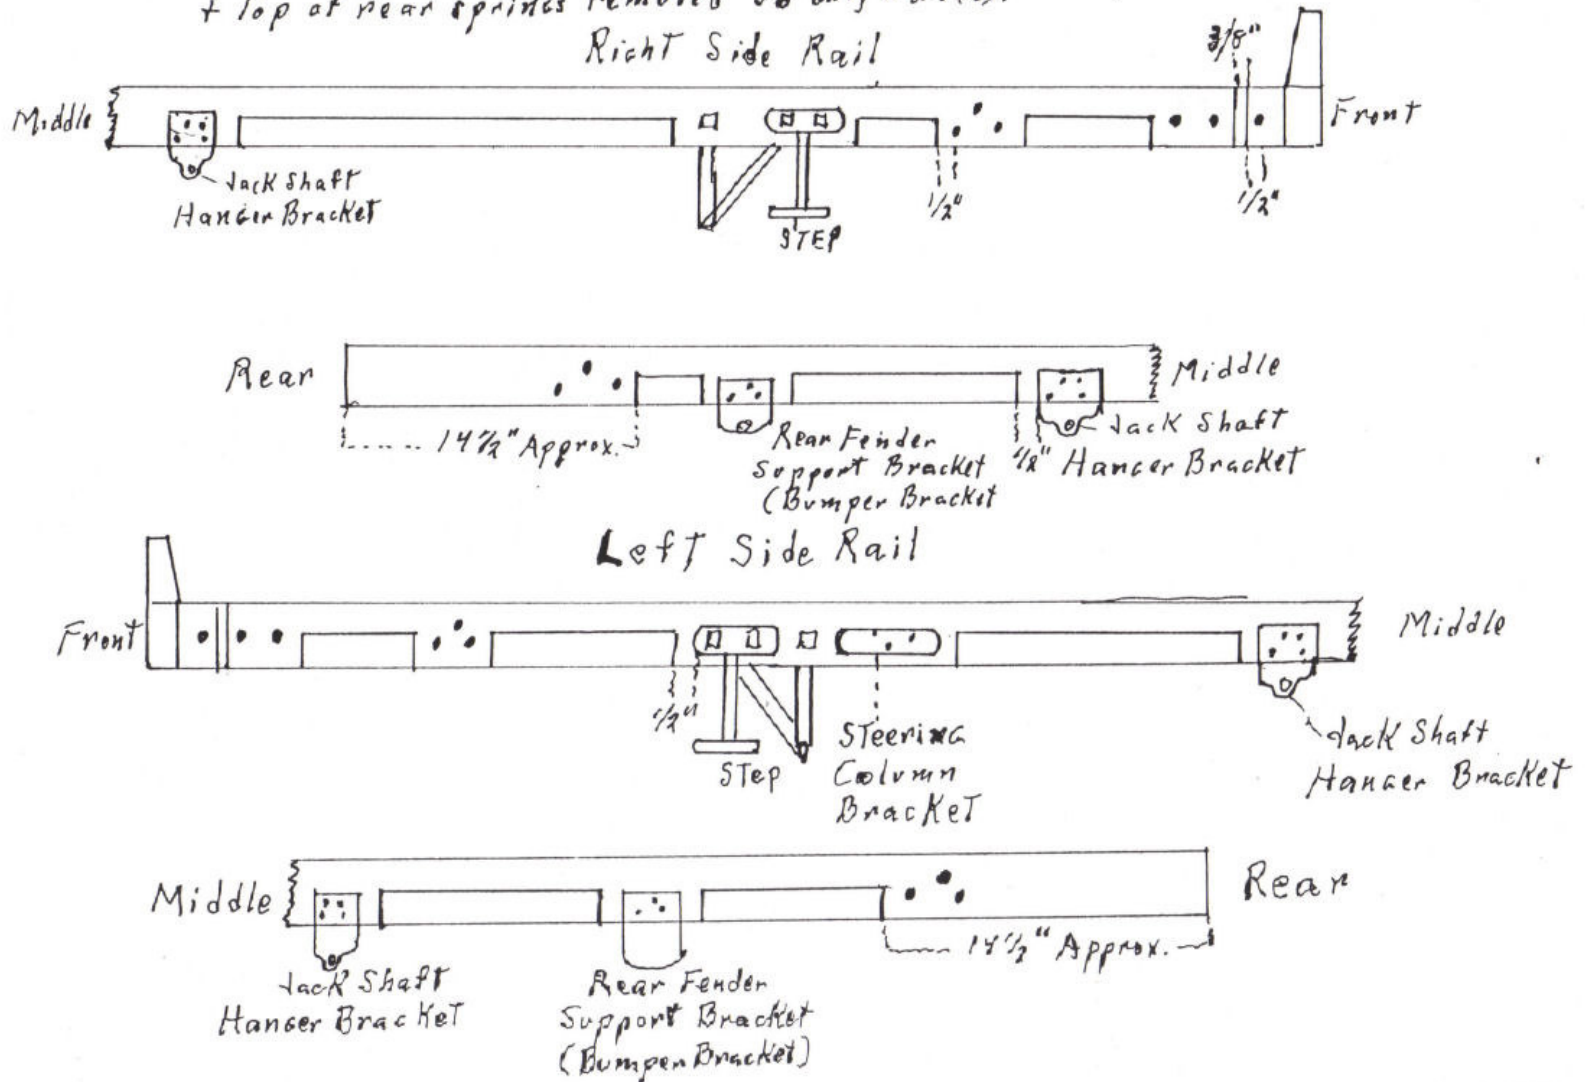 + Top of rear springs removed
Right Side Rail
3/8"
Middle
Front
Jack Shaft
Hanger Bracket
STEP
1/2"
1/2"
Rear
Middle
14 1/2" Approx.
Rear Fender
Support Bracket
(Bumper Bracket
1/2"
Jack Shaft
Hanger Bracket
Left Side Rail
Front
Middle
1/2"
STep
STeering
Column
BracKeT
Jack Shaft
Hanger Bracket
Middle
Rear
14 1/2" Approx.
Jack Shaft
Hanger Bracket
Rear Fender
Support Bracket
(Bumper Bracket)